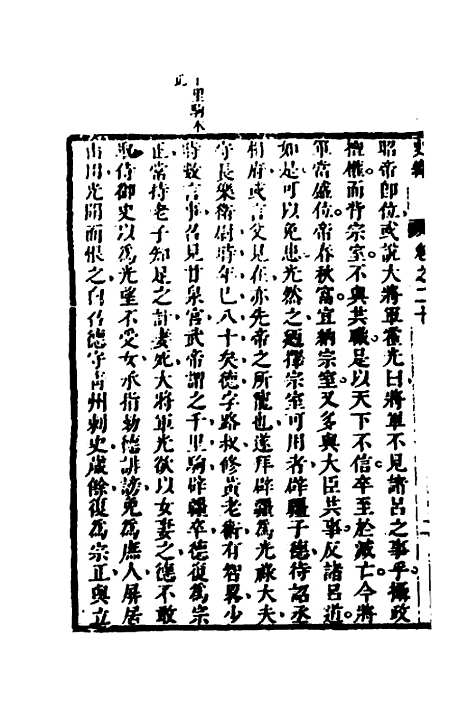 千里駒本
此
史
卷之二十
昭帝即位或說大將軍霍光曰將軍不見諸呂之事乎攝政
擅權而背宗室不與共職是以天下不信卒至於滅亡今將
軍當盛位帝春秋富宜納宗室又多與大臣共事反諸呂道
如是可以免患光然之廼擇宗室可用者辟彊子德待詔丞
相府或言父見在亦先帝之所寵也遂拜辟彊爲光祿大夫
守長樂衛尉時年已八十矣德字路叔修黃老術有智畧少
時數言事召見甘泉宮武帝謂之千里駒辟彊卒德復爲宗
正常持老子知足之計妻死大將軍光欲以女妻之德不敢
取侍御史以爲光望不受女承指劾德誹謗免爲庶人屏居
山田光聞而恨之白召德守青州刺史歲餘復爲宗正與立